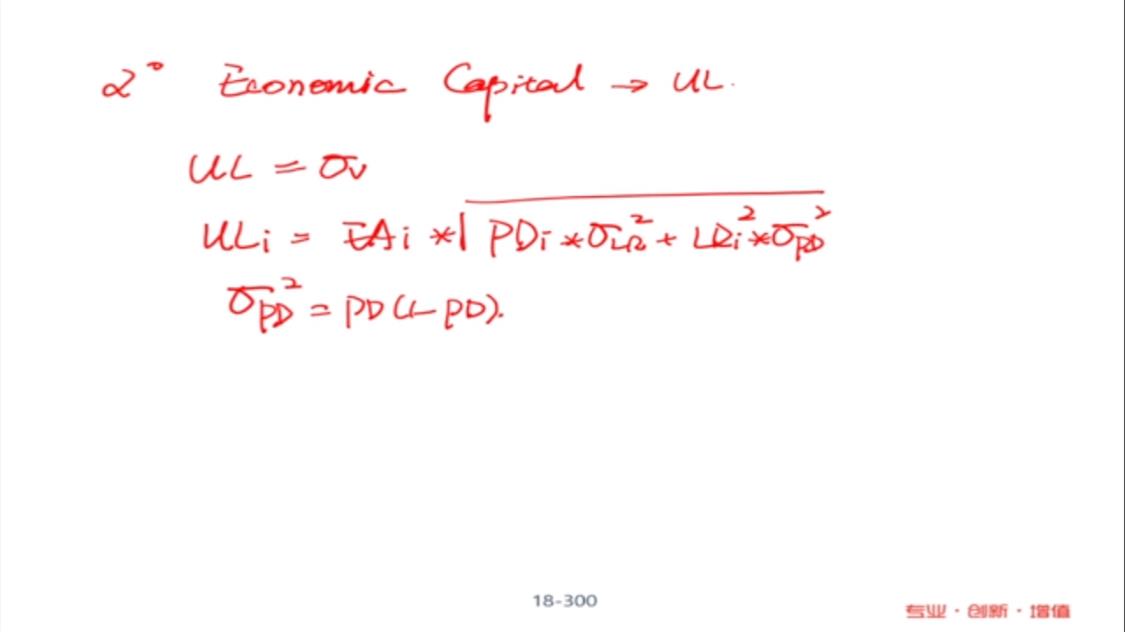 2° Economic Capital → UL.
UL = σv
ULi = EAi * √PDi * σLR² + LRi² * σPD²
σPD² = PD(1-PD).
18-300
专业·创新·增值